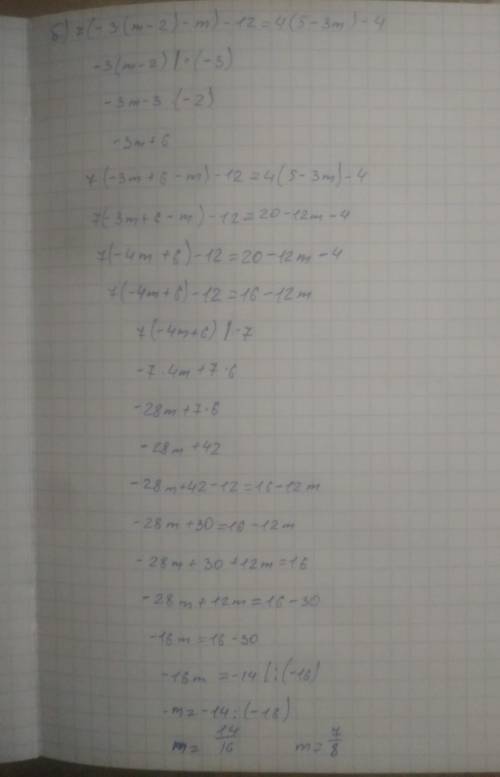 б) 7(-3(m-2)-m)-12=4(5-3m)-4
-3(m-2) |·(-3)
-3m-3·(-2)
-3m+6
7(-3m+6-m)-12=4(5-3m)-4
7(-3m+6-m)-12=20-12m-4
7(-4m+6)-12=20-12m-4
7(-4m+6)-12=16-12m
7(-4m+6) |·7
-7·4m+7·6
-28m+7·6
-28m+42
-28m+42-12=16-12m
-28m+30=16-12m
-28m+30+12m=16
-28m+12m=16-30
-16m=16-30
-16m=-14 |:(-16)
-m=-14:(-16)
m=14/16 m=7/8